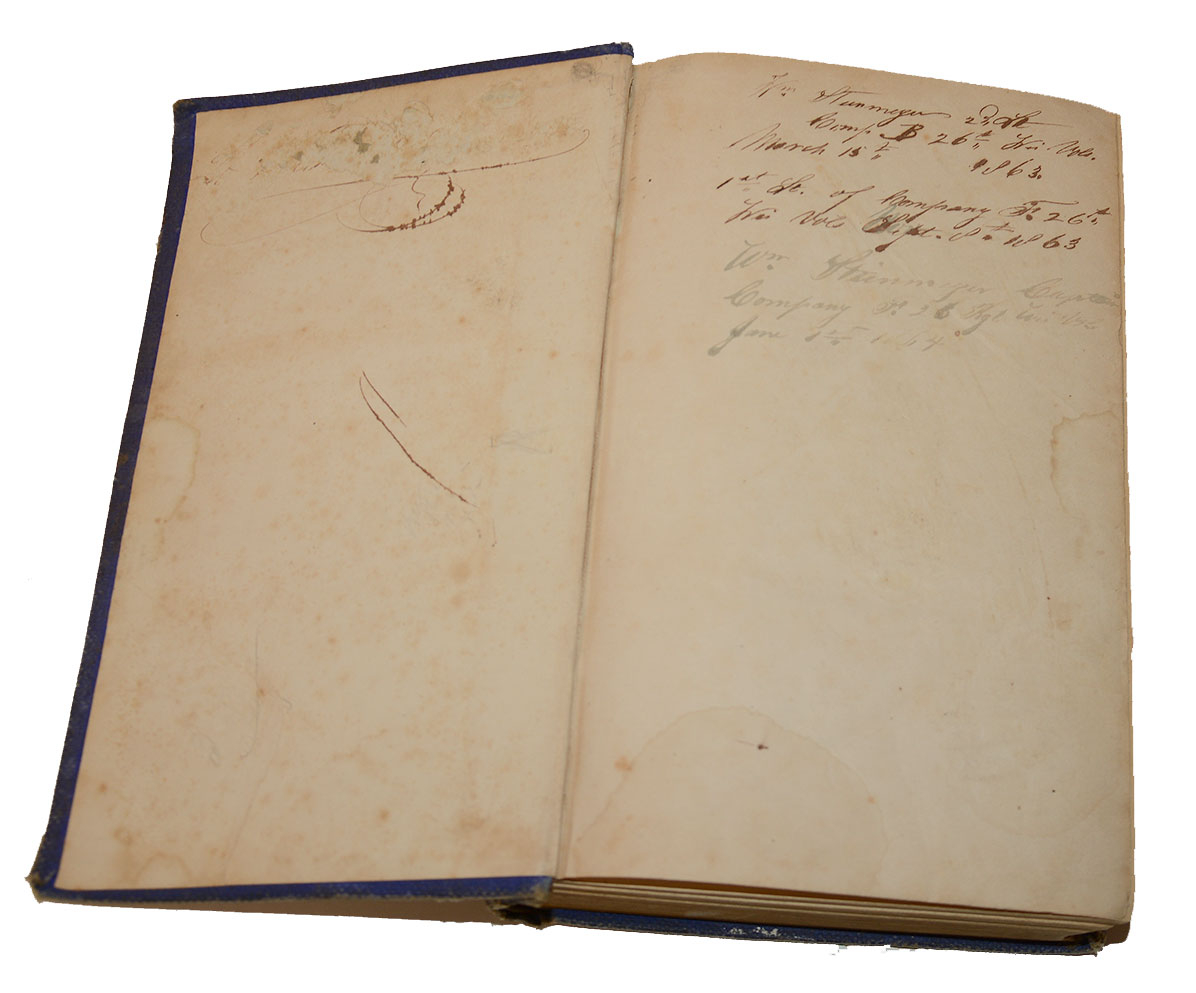 Wm Steinmeyer 2d Lt
Comp. B 26th Wis Vols.
March 15th 1863.
1st Lt. of Company F. 26th
Wis Vols Sept. 8th 1863
Wm Steinmeyer Captain
Company F. 26 Rgt Wis Vols
June 1st 1864